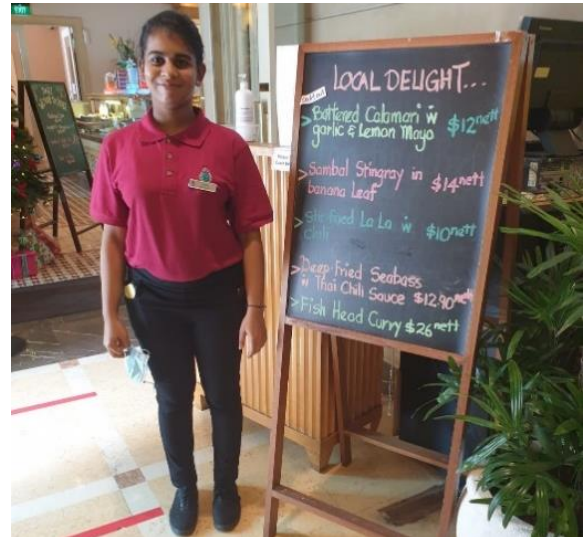 EXIT
LOCAL DELIGHT...
> Battered Calamari w̄
garlic & Lemon Mayo $12nett
> Sambal Stingray in
banana Leaf $14nett
> Stir fried La La w̄
chili $10nett
> Deep Fried Seabass
w̄ Thai Chili Sauce $12.90nett
> Fish Head Curry $26nett